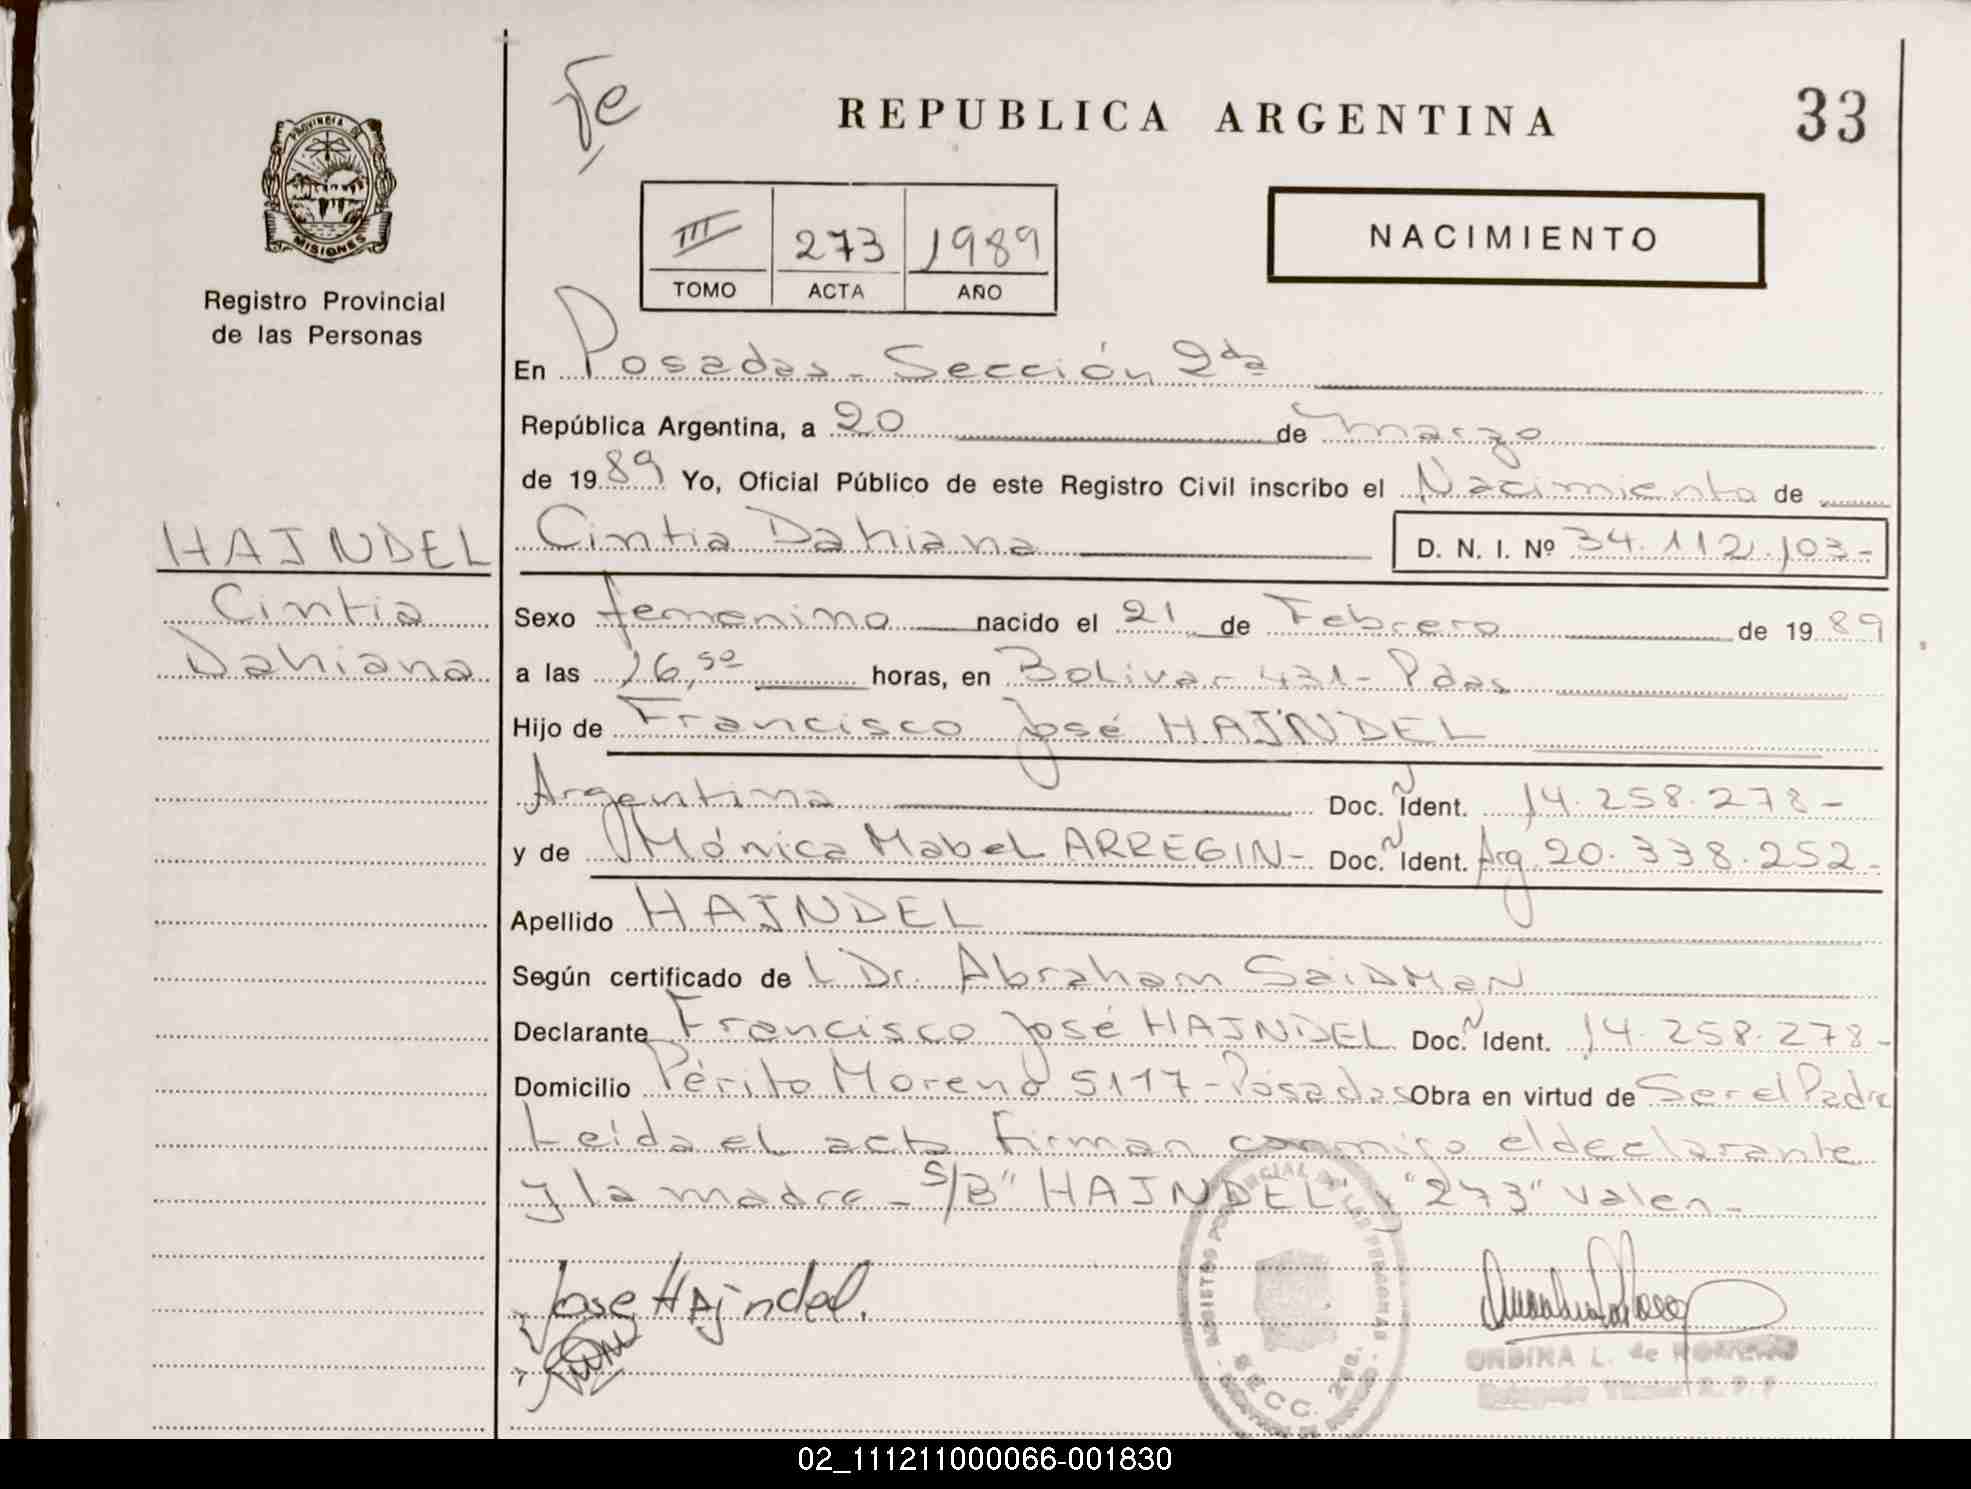 Fe
REPUBLICA ARGENTINA
33
PROVINCIA DE
MISIONES
Registro Provincial
de las Personas
III 273 1989
TOMO ACTA AÑO
NACIMIENTO
En Posadas - Sección 2da
República Argentina, a 20 de Marzo
de 1989 Yo, Oficial Público de este Registro Civil inscribo el Nacimiento de
HAJNDEL
Cintia
Dahiana
Cintia Dahiana D. N. I. Nº 34.112.103-
Sexo femenino nacido el 21 de Febrero de 1989
a las 16,50 horas, en Bolivar 431 - Pdas
Hijo de Francisco José HAJNDEL
Argentina Doc. Ident. 14.258.278-
y de Mónica Mabel ARREGIN- Doc. Ident. Arg 20.338.252-
Apellido HAJNDEL
Según certificado de L Dr. Abraham SaiDMaN
Declarante Francisco José HAJNDEL Doc. Ident. 14.258.278-
Domicilio Périto Moreno 5117 - Posadas Obra en virtud de Ser el Padre
Leída el acta firman conmigo el declarante
y la madre - S/B "HAJNDEL" y "273" Valen -
Jose Hajndel.
SECC. 2da.
ORDINA L. de
02_111211000066-001830